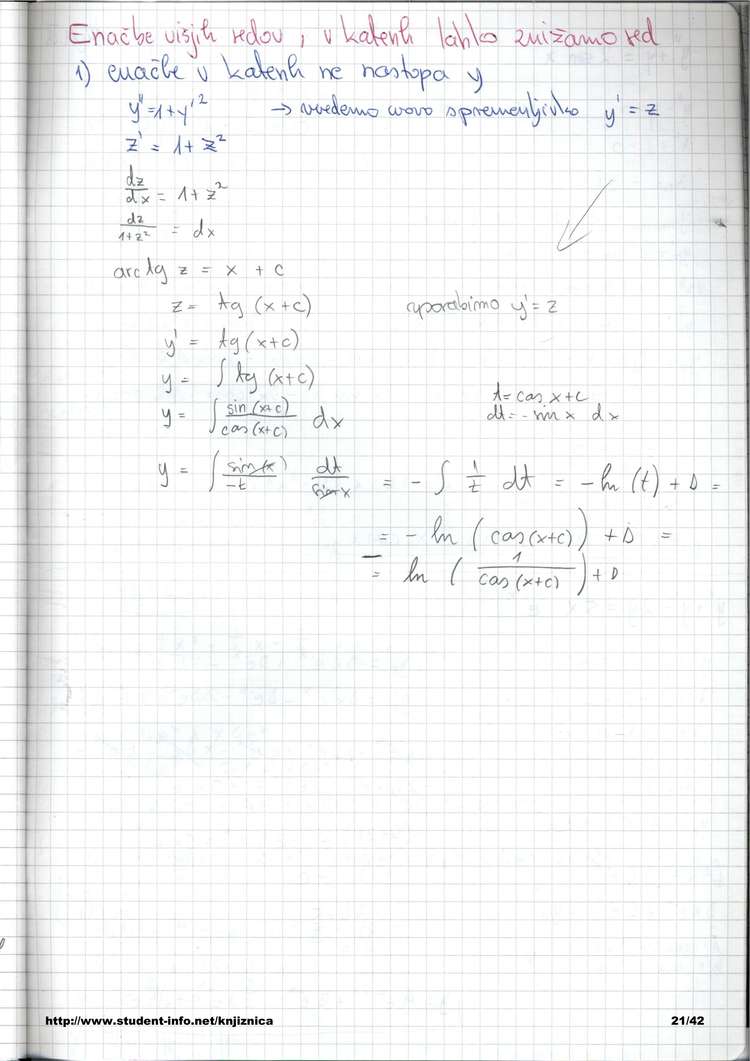 Enačbe višjih redov, v katerih lahko znižamo red
1) enačbe v katerih ne nastopa y
y'' = 1 + y'² → uvedemo novo spremenljivko y' = z
z' = 1 + z²
dz/dx = 1 + z²
dz/(1+z²) = dx
arctg z = x + c
z = tg (x+c) uporabimo y' = z
y' = tg (x+c)
y = ∫ tg (x+c)
y = ∫ sin(x+c)/cos(x+c) dx t = cos x+c
dt = - sin x dx
y = ∫ sin(x)/-t dt/sin x = - ∫ 1/t dt = - ln (t) + D =
= - ln (cos(x+c)) + D =
= ln (1/cos(x+c)) + D
http://www.student-info.net/knjiznica 21/42